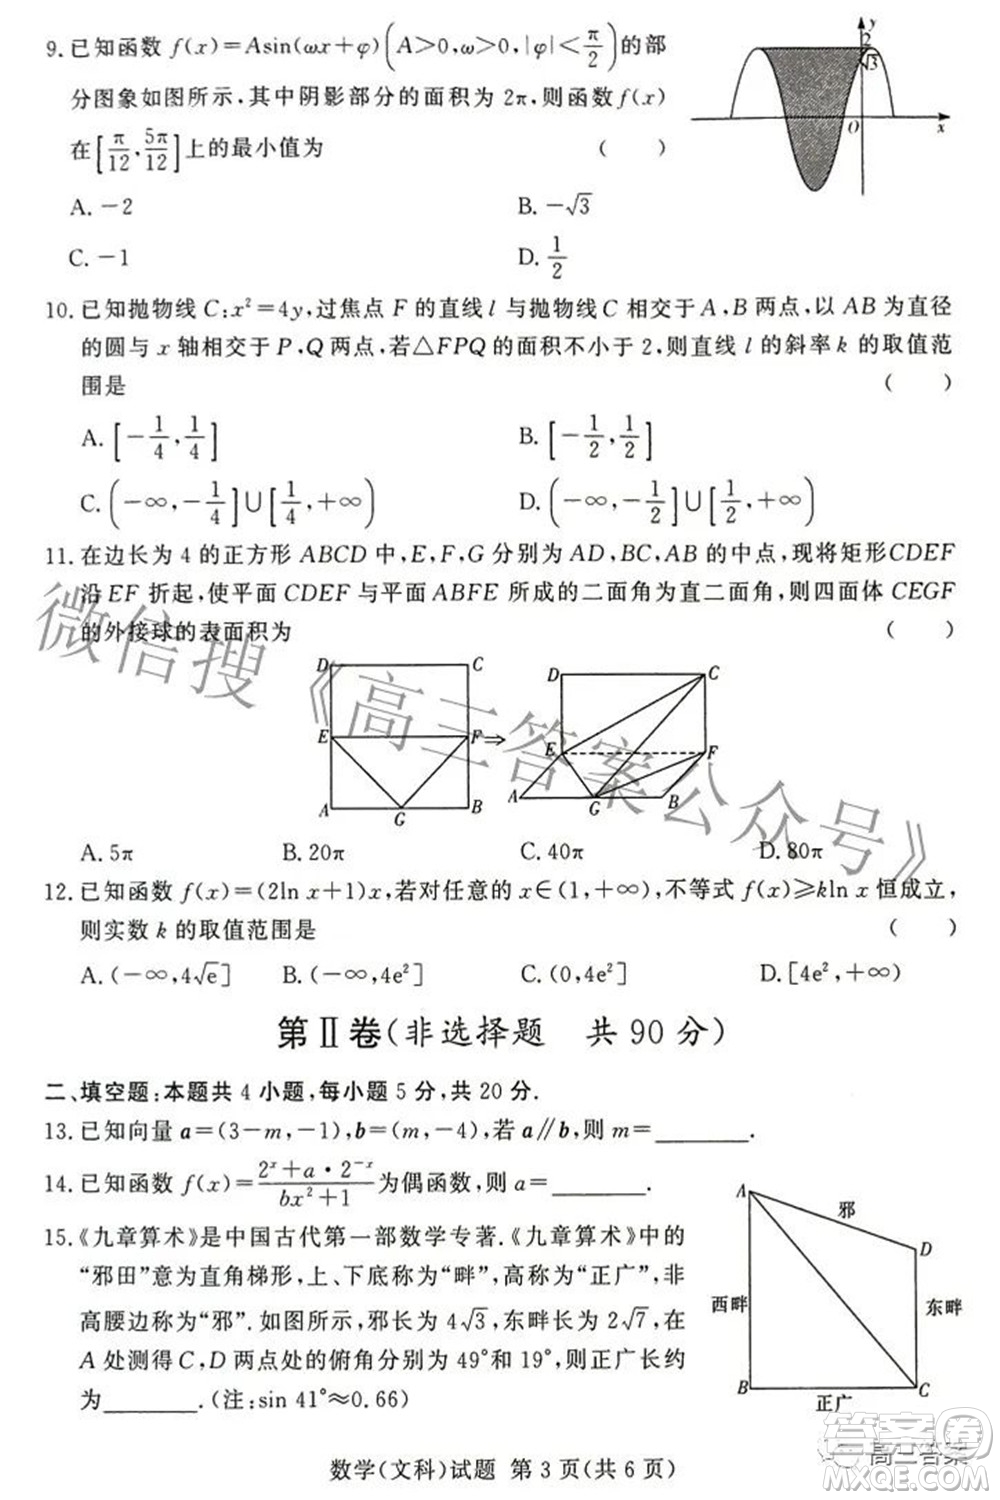 9. 已知函数 f(x)=Asin(ωx+φ)(A>0,ω>0,|φ|<π/2)的部
分图象如图所示,其中阴影部分的面积为 2π,则函数 f(x)
在[π/12,5π/12]上的最小值为 ( )
A. -2 B. -√3
C. -1 D. 1/2
y
2
√3
O
x
10. 已知抛物线 C:x²=4y,过焦点 F 的直线 l 与抛物线 C 相交于 A,B 两点,以 AB 为直径
的圆与 x 轴相交于 P,Q 两点,若△FPQ 的面积不小于 2,则直线 l 的斜率 k 的取值范
围是 ( )
A. [-1/4,1/4] B. [-1/2,1/2]
C. (-∞,-1/4]∪[1/4,+∞) D. (-∞,-1/2]∪[1/2,+∞)
11. 在边长为 4 的正方形 ABCD 中,E,F,G 分别为 AD,BC,AB 的中点,现将矩形CDEF
沿 EF 折起,使平面 CDEF 与平面 ABFE 所成的二面角为直二面角,则四面体 CEGF
的外接球的表面积为 ( )
D C D C
E F ⇒ E F
A G B A G B
A. 5π B. 20π C. 40π D. 80π
12. 已知函数 f(x)=(2ln x+1)x,若对任意的 x∈(1,+∞),不等式 f(x)≥kln x 恒成立,
则实数 k 的取值范围是 ( )
A. (-∞,4√e] B. (-∞,4e²] C. (0,4e²] D. [4e²,+∞)
第Ⅱ卷(非选择题 共 90 分)
二、填空题:本题共 4 小题,每小题 5 分,共 20 分.
13. 已知向量 a=(3-m,-1),b=(m,-4),若 a∥b,则 m=______.
14. 已知函数 f(x)=(2ˣ+a·2⁻ˣ)/(bx²+1)为偶函数,则 a=______.
15.《九章算术》是中国古代第一部数学专著.《九章算术》中的
“邪田”意为直角梯形,上、下底称为“畔”,高称为“正广”,非
高腰边称为“邪”.如图所示,邪长为 4√3,东畔长为 2√7,在
A 处测得 C,D 两点处的俯角分别为 49°和 19°,则正广长约
为______.(注:sin 41°≈0.66)
A
邪
D
西畔
东畔
B
正广
C
数学(文科)试题 第 3 页(共 6 页)
微信搜《高三答案公众号》
高三答案
答案圈
MXQE.COM